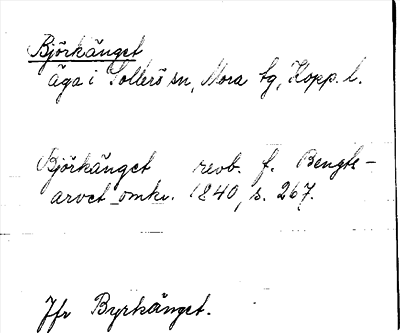 Björkänget
äga i Sollerö sn, Mora tg, Kopp. l.
Björkänget revb. f. Bengts-
arvet omkr. 1840, s. 267.
Jfr Byrkänget.